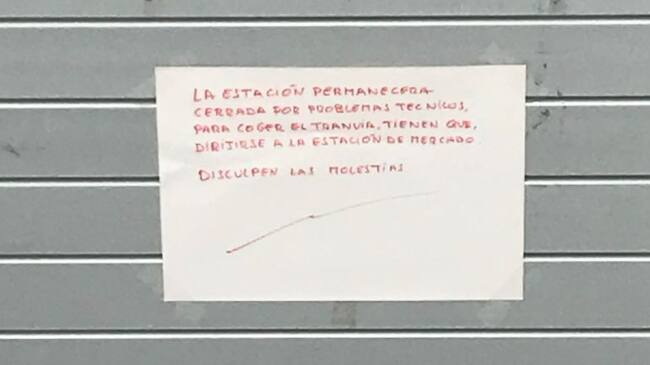 LA ESTACIÓN PERMANECERA
CERRADA POR PROBLEMAS TECNICOS,
PARA COGER EL TRANVIA, TIENEN QUE,
DIRITIRSE A LA ESTACIÓN DE MERCADO
DISCULPEN LAS MOLESTÍAS